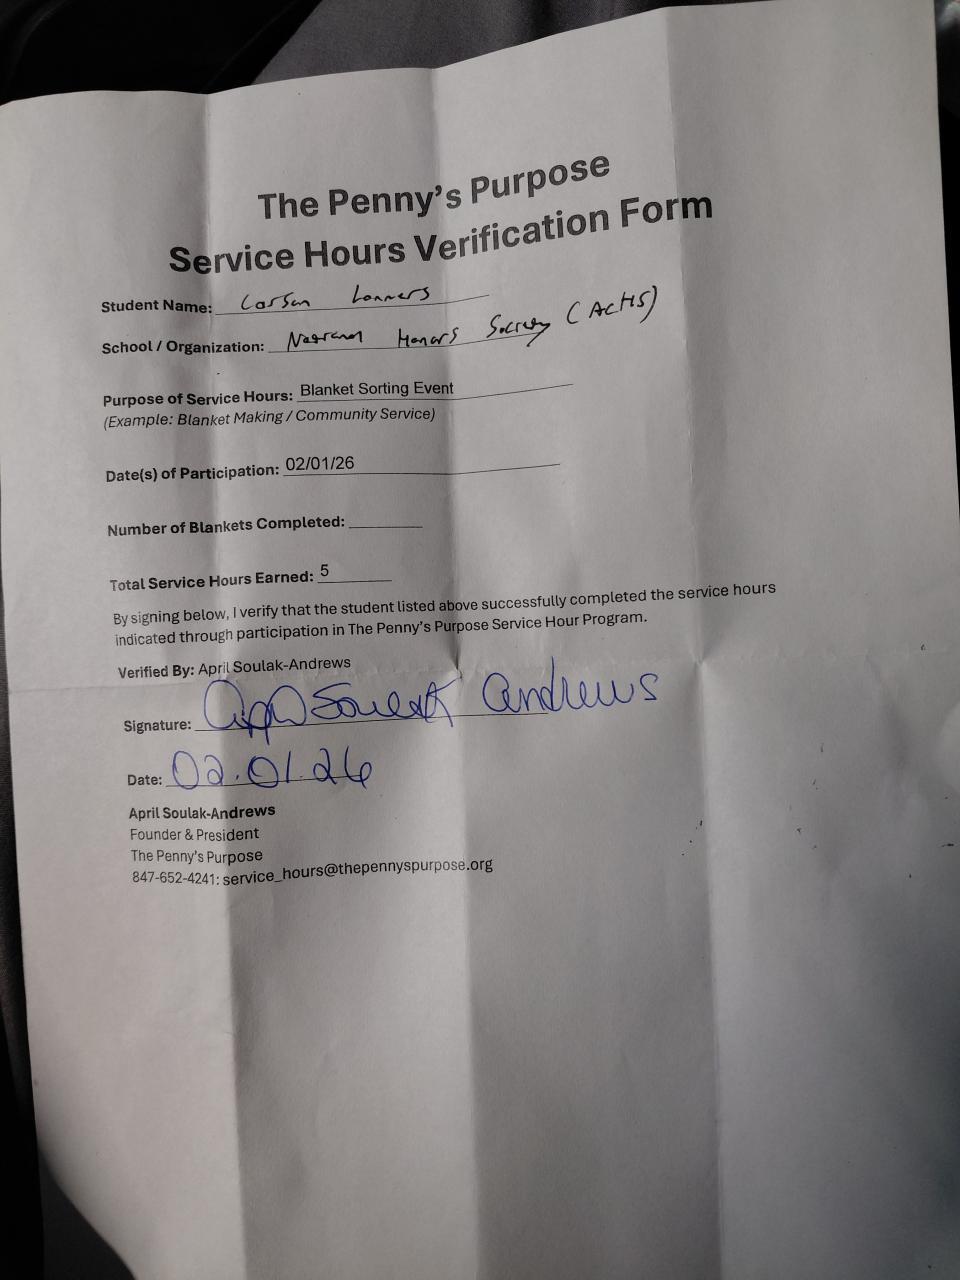 The Penny's Purpose
Service Hours Verification Form
Student Name: Carson Lanners
School / Organization: National Honors Society (ACHS)
Purpose of Service Hours: Blanket Sorting Event
(Example: Blanket Making / Community Service)
Date(s) of Participation: 02/01/26
Number of Blankets Completed:
Total Service Hours Earned: 5
By signing below, I verify that the student listed above successfully completed the service hours
indicated through participation in The Penny's Purpose Service Hour Program.
Verified By: April Soulak-Andrews
Signature: April Soulak Andrews
Date: 02.01.26
April Soulak-Andrews
Founder & President
The Penny's Purpose
847-652-4241: service_hours@thepennyspurpose.org